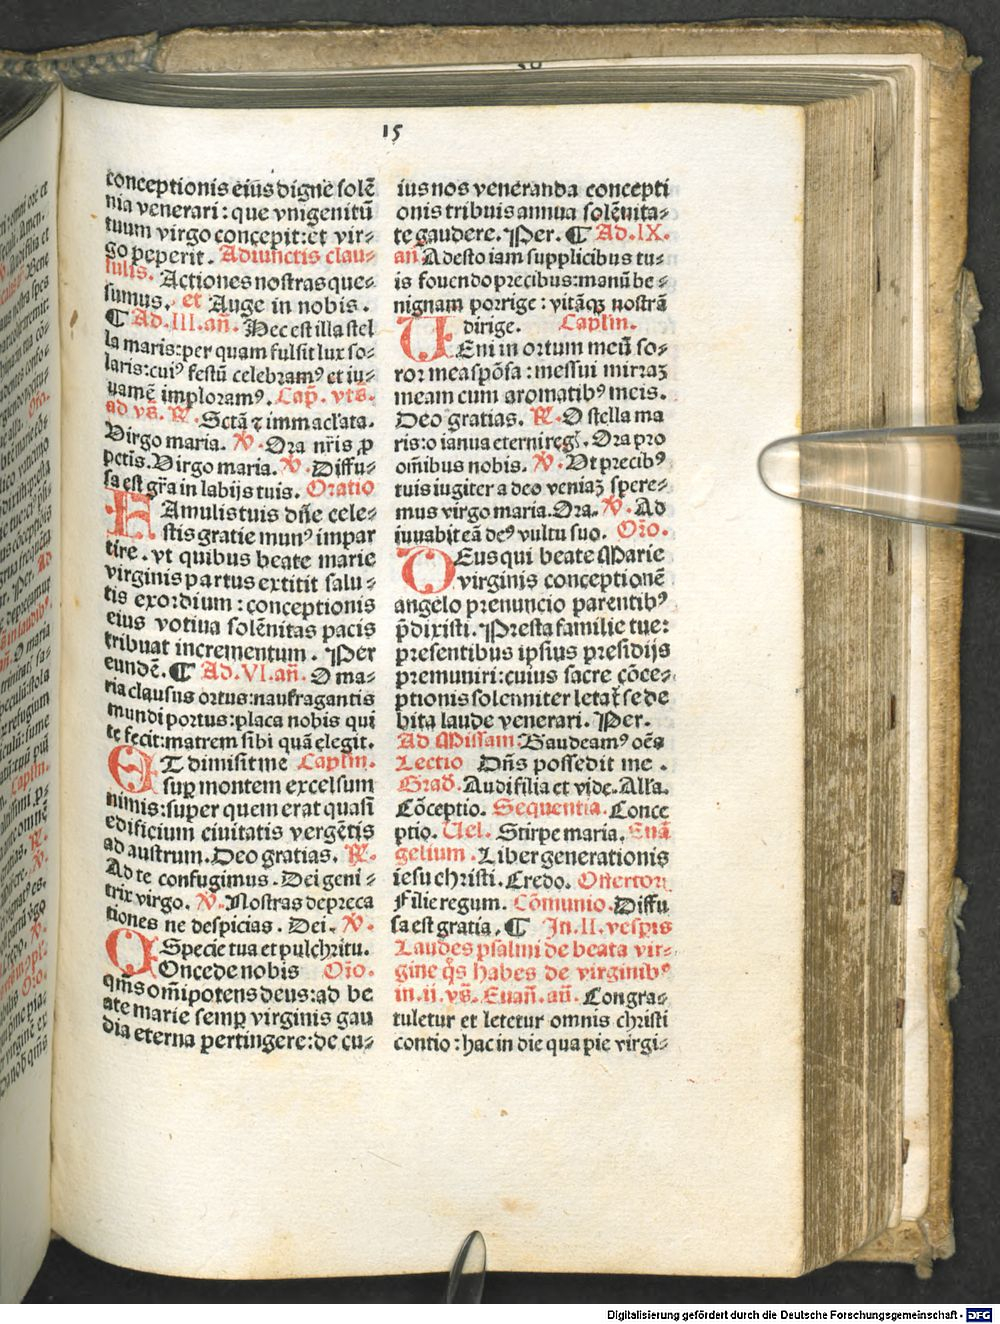 15
conceptionis eiūs digne solē
nia venerari : que vnigenitū
tuum virgo concepit: et vir⸗
go peperit. Adiunctis clau⸗
sulis. Actiones nostras que⸗
sumus. et Auge in nobis.
¶ Ad.III.añ. Hec est illa stel
la maris: per quam fulsit lux so⸗
laris: cuiꝰ festū celebramꝰ et iu⸗
uamē imploramꝰ. Cap. vts̄.
ad vs̄. ℟. Sctā ⁊ immacl'ata.
Virgo maria. ℣. Ora nr̄is p
pctīs. Virgo maria. ℣. Diffu⸗
sa est gr̄a in labijs tuis. Oratio
FAmulis tuis dn̄e cele⸗
stis gratie munꝰ impar
tire. vt quibus beate marie
virginis partus extitit salu⸗
tis exordium : conceptionis
eius votiua solēnitas pacis
tribuat incrementum. Per
eundē. ¶ Ad.VI.añ. O ma⸗
ria clausus ortus: naufragantis
mundi portus: placa nobis qui
te fecit: matrem sibi quā elegit.
ET dimisit me Caplm̄.
sup montem excelsum
nimis: super quem erat quasi
edificium ciuitatis vergētis
ad austrum. Deo gratias. ℟.
Ad te confugimus. Dei geni⸗
trix virgo. ℣. Nostras depreca
tiones ne despicias. Dei. ℣.
Specie tua et pulchritu.
COncede nobis Oīo.
qm̄s om̄ipotens deus: ad be
ate marie semp virginis gau
dia eterna pertingere: de cu⸗
ius nos veneranda concepti
onis tribuis annua solēnita⸗
te gaudere. Per. ¶ Ad.IX.
añ Adesto iam supplicibus tu⸗
is fouendo precibus: manū be⸗
nignam porrige : vitāqꝫ nostrā
dirige. Caplm̄.
VEni in ortum meū so⸗
ror mea spōsa : messui mirraꝫ
meam cum aromatibꝰ meis.
Deo gratias. ℟. O stella ma
ris: o ianua eterni reḡ. Ora pro
om̄ibus nobis. ℣. Vt precibꝰ
tuis iugiter a deo veniaꝫ spere⸗
mus virgo maria. Ora. ℣. Ad
iuuabit eā deꝰ vultu suo. Oīo.
DEus qui beate Marie
virginis conceptionē
angelo prenuncio parentibꝰ
p̄dixisti. Presta familie tue:
presentibus ipsius presidijs
premuniri: cuius sacre cōce⸗
ptionis solenniter letat̄ se de
bita laude venerari. Per.
Ad Missam: Gaudeamꝰ oēs
Lectio Dn̄s possedit me.
Grad̄. Audi filia et vide. All'a.
Cōceptio. Sequentia. Conce
ptio. Uel. Stirpe maria. Euā
gelium. Liber generationis
iesu christi. Credo. Offertori.
Filie regum. Cōmunio. Diffu
sa est gratia. ¶ In.II.vespis
Laudes psalmi de beata vir⸗
gine qs̄ habes de virginibꝰ
in.ii.vs̄. Euañ. añ. Congra⸗
tuletur et letetur omnis christi
contio : hac in die qua pie virgi⸗
Digitalisierung gefördert durch die Deutsche Forschungsgemeinschaft - DFG